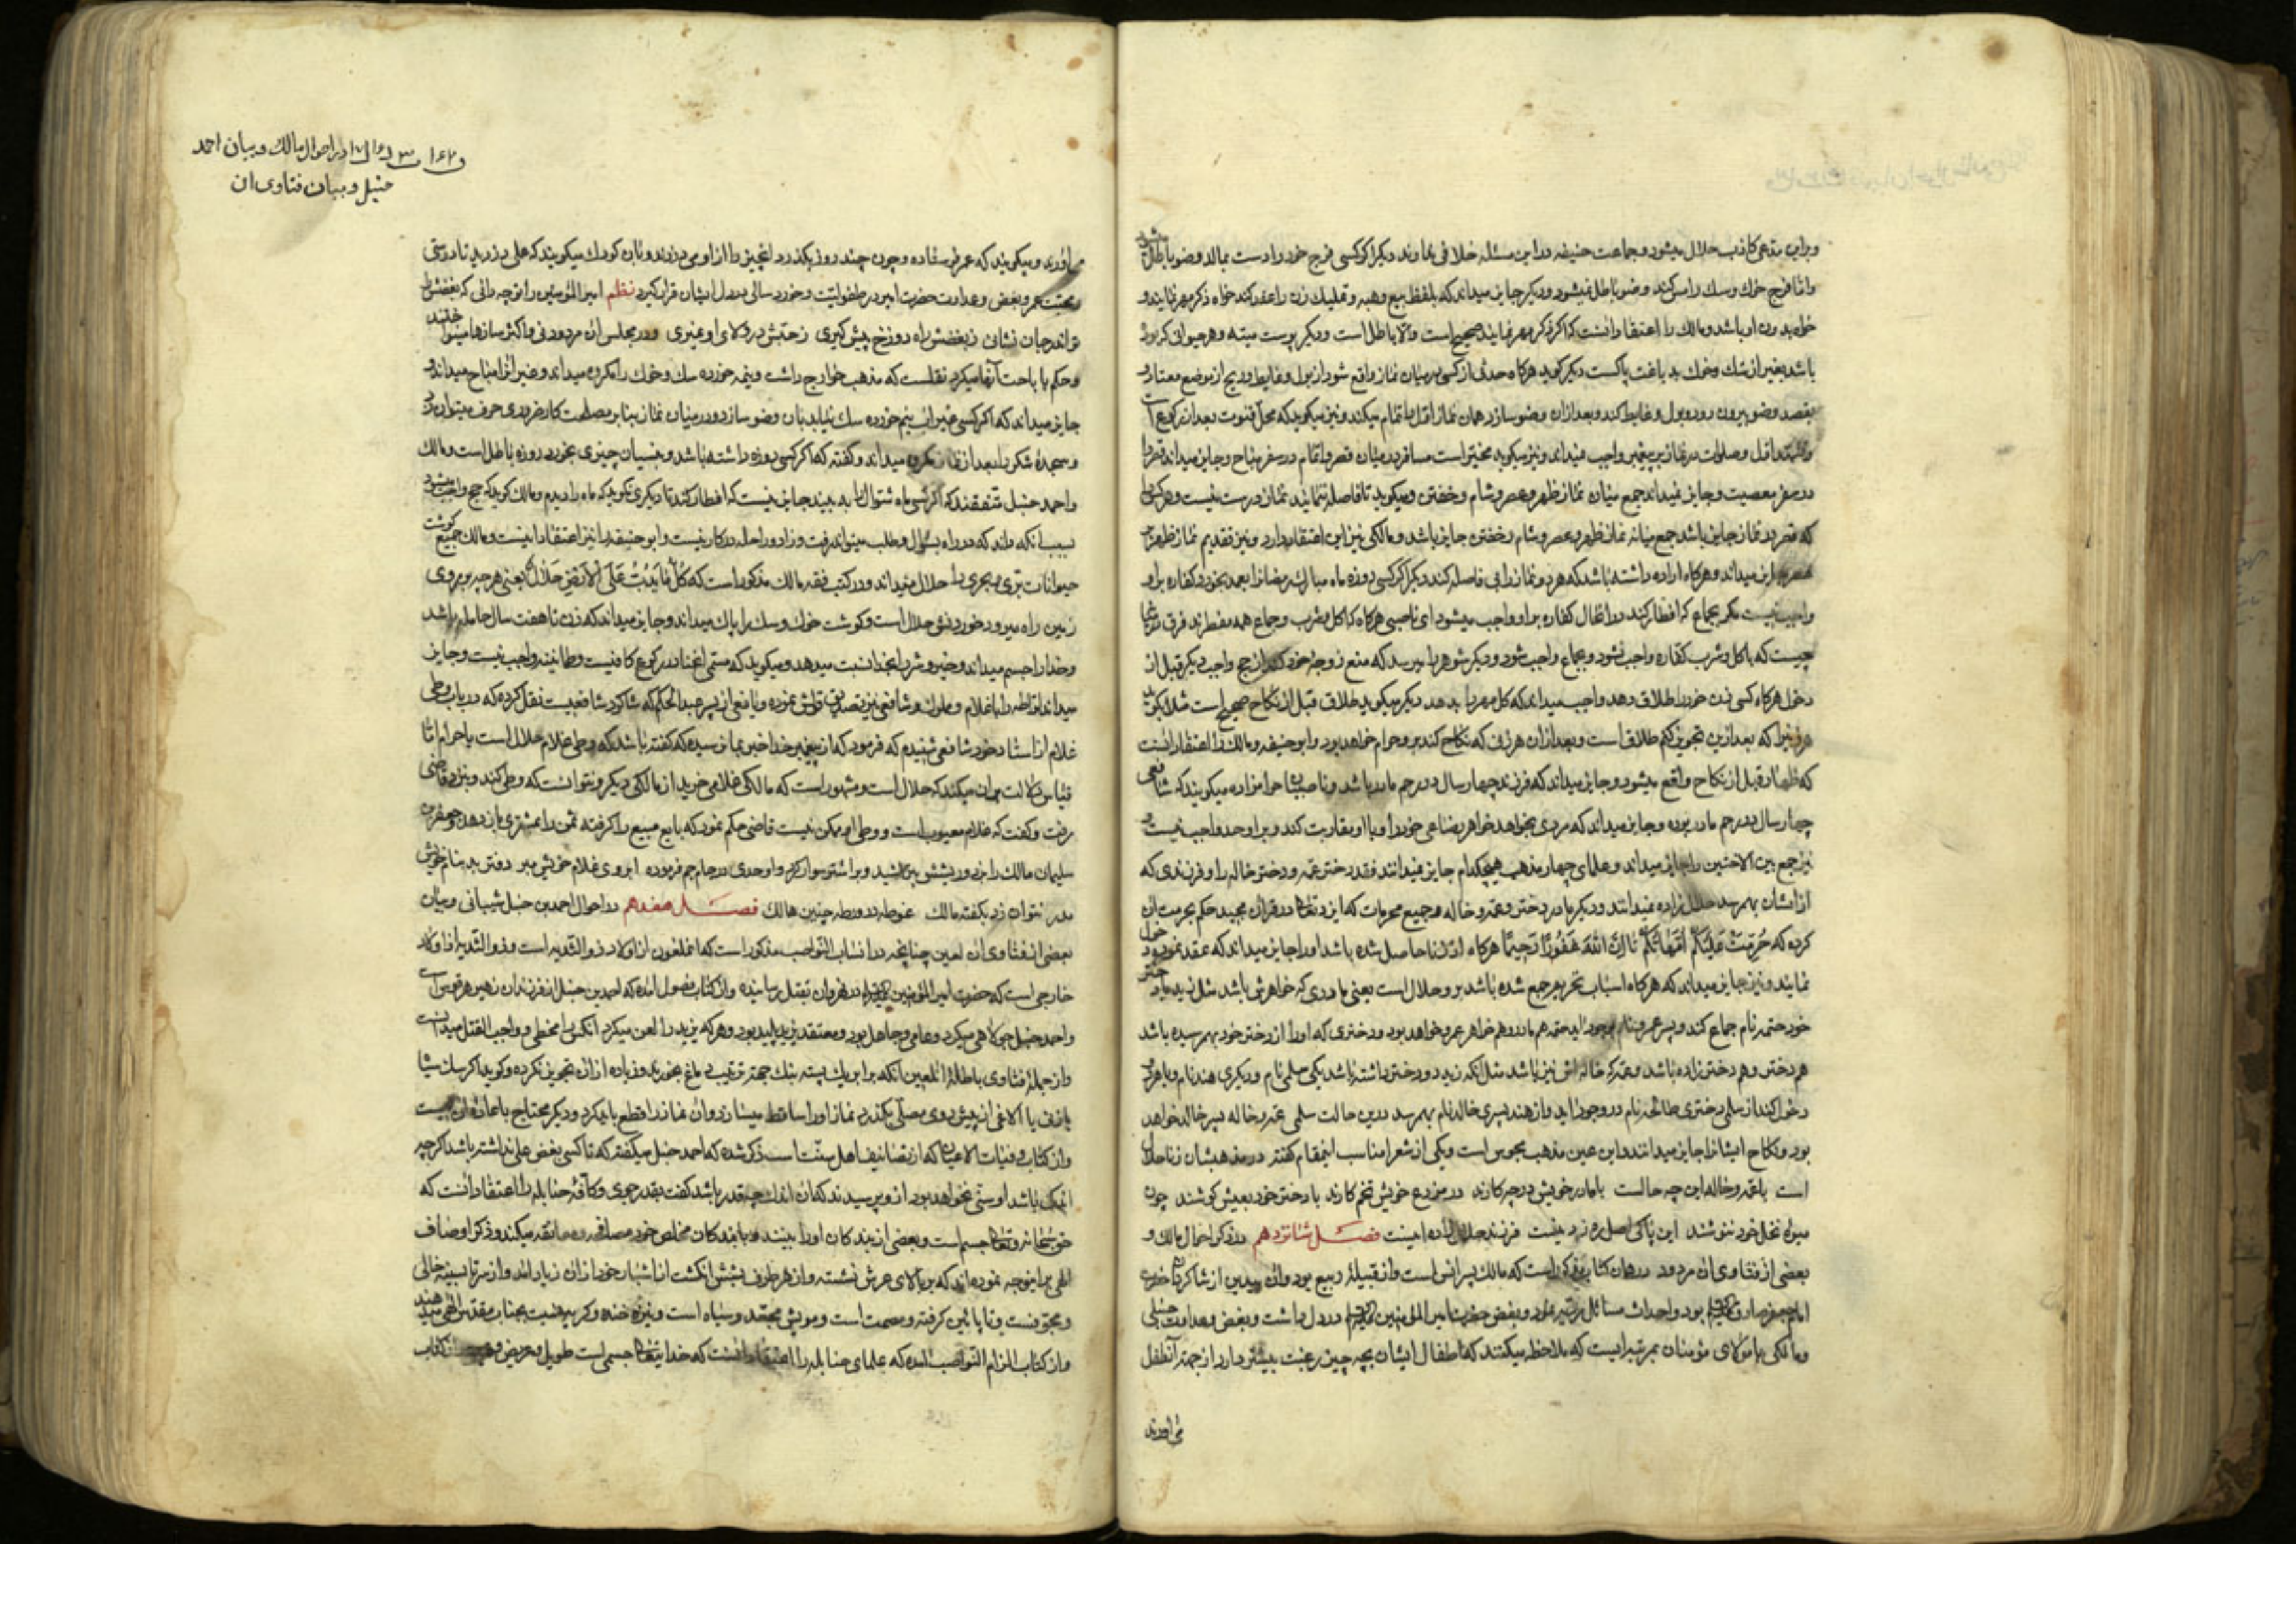 وبراین مدعی کاذب حلال میشود وجماعت حنیفه در این مسئله خلافی ندارند دیگر اکر کسی فرج خود را دست بمالد وضو باطل میشود
واما فرج خوك وسك را مس کند وضو باطل نمیشود ودیکر جایز میداند که بلفظ بیع وهبه وتملیك زن را عقد کند خواه ذکر مهر نمایند و
خواه بدون او باشد ومالك را اعتقاد آنست که اکر ذکر مهر نمایند صحیح است والا باطل است ودیکر پوست میته وهر حیوانی که بوده
باشد بغیر از سك وخوك بدباغت پاکست دیکر کوید هرکاه حدثی از کسی در میان نماز واقع شود از بول وغایط وریح از موضع معتاد و
بقصد وضو بیرون رود وبول وغایط کند وبعد ازان وضو سازد همان نماز اول را تمام میکند ونیز میکوید که محل قنوت بعد از رکوع است
وتشهد اول وصلوات در نماز بر پیغمبر واجب نمیداند ونیز میکوید مخیر است مسافر در میان قصر واتمام در سفر مباح وجایز میداند قصر را
در سفر معصیت وجایز نمیداند جمع میان نماز ظهر وعصر وشام وخفتن ومیکوید تا فاصله ننمایند نماز درست نیست وهر کس را
که قصر در نماز جایز باشد جمع میانه نماز ظهر وعصر وشام وخفتن جایز باشد ومالکی نیز این اعتقاد دارد ونیز تقدیم نماز ظهر بر
میداند وهرکاه اراده داشته باشد که هر دو نماز را بی فاصله کند دیکر اکر کسی روزه ماه مبارك رمضان را بعمد بخورد کفاره برو
واجب نیست مکر بجماع که افطار کند در انحال کفاره برو واجب میشود ای ناصبی هرکاه که اکل وشرب وجماع همه مفطرند فرق
چیست که باکل وشرب کفاره واجب نشود وبجماع واجب شود ودیکر شوهر را میرسد که منع زوجه خود کند از حج واجب دیکر قبل از
دخول هرکاه کسی زن خود را طلاق دهد واجب میداند که کل مهر را بدهد دیکر میکوید طلاق قبل از نکاح صحیح است مثلا بکوید
که بعد ازین تجویز کنم طلاق است وبعد ازان هر زنی که نکاح کند برو حرام خواهد بود وابو حنیفه ومالك را اعتقاد آنست
که ظهار قبل از نکاح واقع میشود وجایز میداند که فرزند چهار سال در رحم مادر باشد وناصبیان حرامزاده میکویند که شافعی
چهار سال در رحم مادر بوده وجایز میداند که مردی بخواهد خواهر رضاعی خود را وبا او مقاربت کند وبر او حد واجب نیست و
نیز جمع بین الاختین را جایز میداند وعلمای چهار مذهب هیچکدام جایز نمیدانند عقد دختر عمه ودختر خاله را وفرزندی که
از ایشان بهم رسد حلال زاده نمیدانند ودیکر مادر ودختر وعمه وخاله وجمیع محرمات که ایزد تعالی در قرآن مجید حکم بحرمت آن
کرده که حُرِّمَتْ عَلَیْکُمْ اُمَّهَاتُکُمْ تا اِنَّ اللهَ غَفُورًا رَحِیمًا هرکاه از زنا حاصل شده باشد او را جایز میداند که عقد نموده دخول
نمایند ونیز جایز میداند که هرکاه اسباب تحریم جمع شده باشد برو حلال است یعنی مادری که خواهرش باشد مثل زید با دختر
خود حتمه نام جماع کند وپسر عمرو نام بوجود اید حتمه هم مادر وهم خواهر عمرو خواهد بود ودختری که او را از دختر خود بهم رسیده باشد
هم دختر وهم دختر زاده باشد وعمه که خاله اش نیز باشد مثل انکه زید دو دختر داشته باشد یکی سلمی نام ودیکری هند نام وبا هر دو
دخول کند از سلمی دختری طالحه نام در وجود اید واز هند پسری خالد نام بهم رسد درین حالت سلمی عمه وخاله پسر خالد خواهد
بود ونکاح ایشانرا جایز میدانند واین عین مذهب مجوس است ویکی از شعرا مناسب اینمقام کفته در مذهبشان زنا حلال
است باعمه وخاله این چه حالست بامادر خویش درچه کارند در مزرع خویش تخم کارند با دختر خود بعیش کوشند چون
میوه نخل خود ننوشند این پاکی اصل ره زد نیست فرزند حلال زاده اینست فصــل شانزدهم در ذکر احوال مالك و
بعضی از فتاوی ان مردود در همان کتاب مذکور است که مالك پسر انس است واز قبیله ربیع بود وان بیدین از شاکردان حضرت
امام جعفر صادق بود واحداث مسائل نمود وبغض حضرت امیر المؤمنین در دل داشت وبغض وعداوت حنبلی
ومالکی با مولای مؤمنان بمرتبه ایست که ملاحظه میکنند که اطفال ایشان بچه چیز رغبت بیشتر دارد از جهة آنطفل
می اورند
در احوال مالك وبیان احمد
حنبل وبیان فتاوی ان
می اورند ومیکویند که عمر فرستاده وچون چند روز بکذرد انچیز را از او می دزدند وبان کودك میکویند که علی دزدید تا دوستی
ومحبت عمر وبغض وعداوت حضرت امیر در طفولیت وخورد سالی در دل ایشان قرار کیرد نظم امیر المؤمنین را توچه دانی که بغضش را
تو اندر جان نشانی ز بغضش راه دوزخ پیش کیری ز حبش در ولای او نمیری ودر مجلس ان مردود نی وآکثر سازها مینواختند
وحکم با باحت آنها میکرد نقلست که مذهب خوارج داشت ونیم خورده سك وخوك را مکروه میداند وغیر انرا مباح میداند و
جایز میداند که اکر کسی غیر اب نیم خورده سك نیابد بان وضو سازد ودر میان نماز بنابر مصلحت کار ضروری حرف میتوان زد
وسجدۀ شکر را بعد از نماز مکروه میداند وکفته که اکر کسی روزه داشته باشد وبنسیان چیزی بخورد روزه باطل است ومالك
واحمد حنبل متفقند که اکر کسی ماه شوال را به بیند جایز نیست که افطار کند تا دیکری نکوید که ماه را دیدم ومالك کوید که حج واجب میشود
بسبب انکه داند که در راه بسؤال وطلب میتواند رفت وزاد وراحله در کار نیست وابو حنیفه را نیز اعتقاد اینست ومالك کوشت جمیع
حیوانات بری وبحری را حلال میداند ودر کتب فقه مالك مذکور است که کُلُّ مَا یَدُبُّ عَلَی الاَرْضِ حَلَالٌ یعنی هر چه بر روی
زمین راه میرود خوردنش حلال است وکوشت خوك وسك را پاك میداند وجایز میداند که زن تا هفت سال حامله باشد
وخدا را جسم میداند وخیر وشر را بخدا نسبت میدهد ومیکوید که مسمی انحنا در رکوع کافیست وطمانینه واجب نیست وجایز
میداند لواطه را با غلام ومملوك وشافعی نیز تصدیق قولش نموده ویافعی از پسر عبدالحکم که شاکرد شافعیست نقل کرده که در باب وطی
غلام از استاد خود شافعی شنیدم که فرمود که از پیغمبر خدا خبر بما نرسیده که کفته باشد که وطی غلام حلال است یا حرام اما
قیاس دلالت بران میکند که حلال است ومشهور است که مالکی غلامی خرید از مالکی دیکر ونتوانست که وطی کند ونزد قاضی
رفت وکفت که غلام معیوب است ووطی او ممکن نیست قاضی حکم نمود که بایع مبیع را کرفته ثمن را بمشتری باز دهد
سلیمان مالك را بزد وریشش بتراشید وبر اشتر سوار کرد واوحدی در جام جم فرموده ابروی غلام خویش مبر دفتر بد بنام خویش
مدر نتوان زد بکفته مالك غوطه در ورطه چنین هالك فصــل هفدهم در احوال احمد بن حنبل شیبانی وبیان
بعضی از فتاوی ان لعین چنانچه در انساب النواصب مذکور است که انملعون از اولاد ذو الثدیه است وذو الثدیه
خارجی است که حضرت امیر المؤمنین در نهروان بقتل رسانیده واز کتاب فصول آمده که احمد بن حنبل از فرزندان زهیر هرقوس است
واحمد حنبل جولاهی میکرد وعامی وجاهل بود ومعتقد یزید پلید بود وهر که یزید را لعن میکرد انکس را مخطی وواجب القتل میدانست
واز جملۀ فتاوی باطلۀ آن لعین آنکه برابر یك پسته بنك جهة ترتیب دماغ بخورند وزیاده از انه تجویز نکرده وکوید اکر سك سیا
یا زنی یا الاغی از پیش روی مصلی بکذرد نماز او را ساقط میسازد وان نماز را قطع باید کرد ودیکر محتاج باعاده ان نیست
واز کتاب وفیات الاعیان که از تصانیف اهل سنت است ذکر شده که احمد حنبل میکفته که تا کسی بغض علی نداشته باشد اکر چه
اندك باشد او سنی نخواهد بود از وپرسیدند که ان اندك چه قدر باشد کفت بقدر جوی وکافۀ حنابله را اعتقاد آنست که
حق سبحانه وتعالی جسم است وبعضی از بندکان او را ببیند وبا بندکان مخلص خود مصافحه ومعانقه میکند وذکر اوصاف
الهی براینوجه نموده اند که بر بالای عرش نشسته واز هر طرف بشش انکشت از اشبار خود ازان زیاد آمد واز سر تا سینه خالی
ومجوفست وتا پائین کرفته ومصمت است وموییش مجعد وسیاه است ونیز خنده وکریه نسبت بجناب مقدس الهی میدهند
واز کتاب الزام النواصب آمده که علمای حنابله را اعتقاد آنست که خدایتعالی جسمی است طویل وعریض کتاب